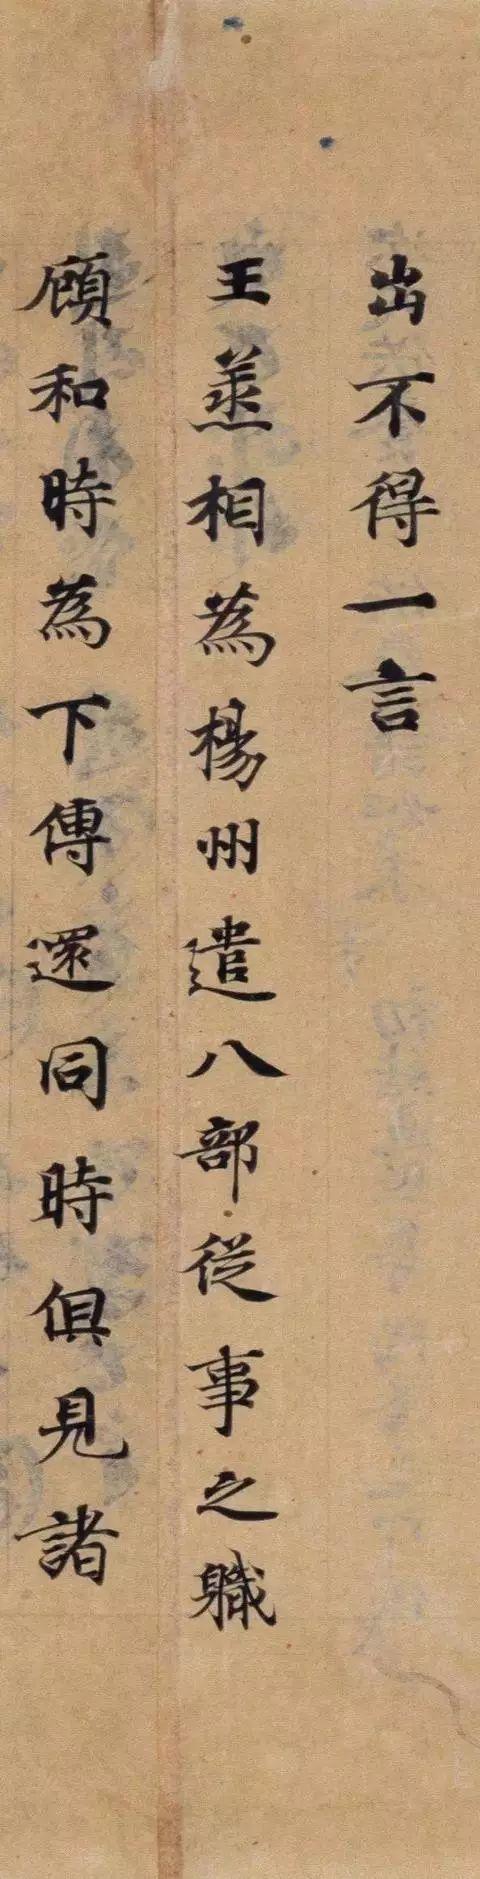 出不得一言
王烝相為楊州遣八部從事之職
顧和時為下傳還同時俱見諸